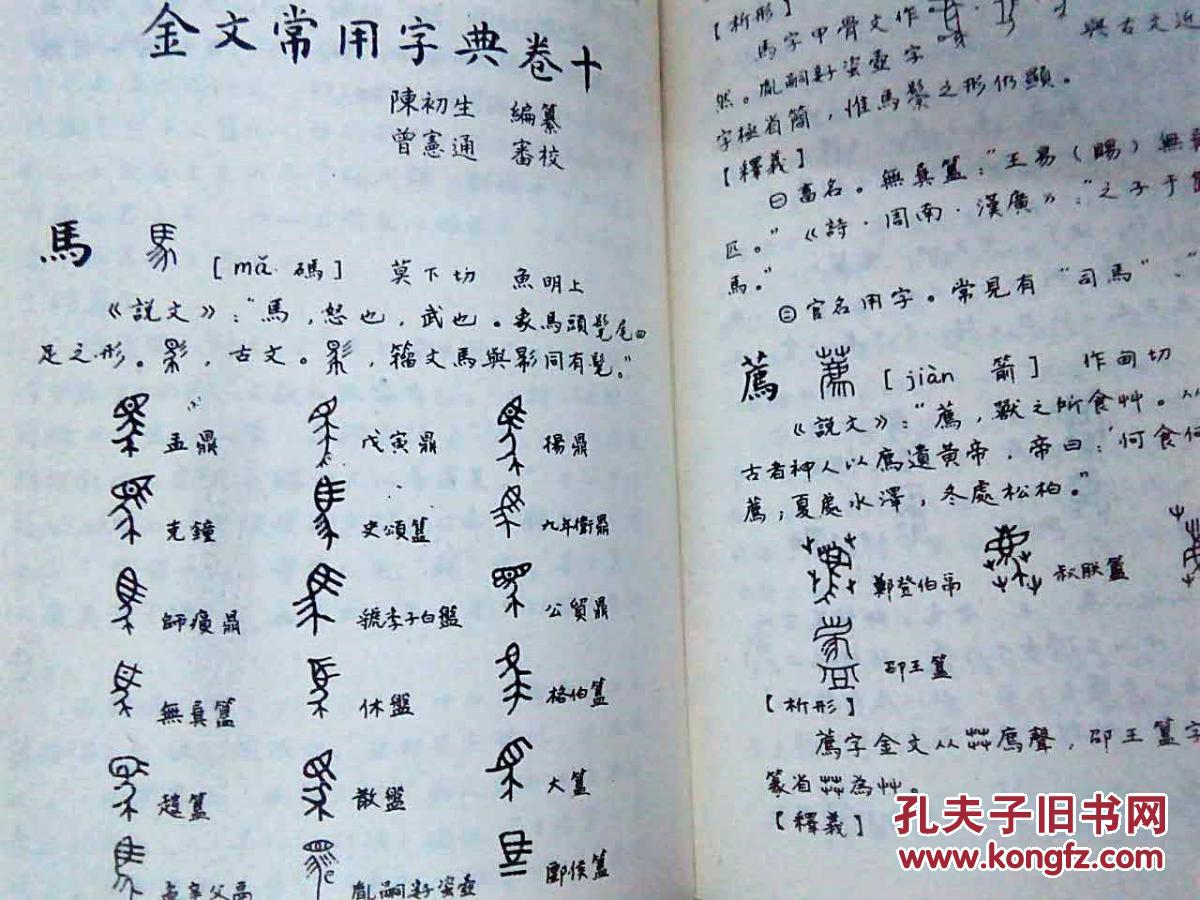 金文常用字典卷十
陳初生 編纂
曾憲通 審校
馬 [mǎ·碼] 莫下切 魚明上
《說文》：“馬，怒也，武也。象馬頭髦尾四
足之形。，古文。，籀文馬與影同有髦。”
盂鼎 戊寅鼎 楊鼎
克鐘 史頌簋 九年衛鼎
師𤸫鼎 虢季子白盤 公貿鼎
無㠱簋 休盤 格伯簋
趞簋 散盤 大簋
父鬲 胤嗣 壺 郾侯簋
【析形】
馬字甲骨文作 與古文近
然。胤嗣 壺字
字極省簡，惟馬鬃之形仍顯。
【釋義】
㊀畜名。無㠱簋：“王易（賜）無
匹。”《詩·周南·漢廣》：“之子于
馬。”
㊁官名用字。常見有“司馬”、“
薦 [jiàn 箭] 作甸切
《說文》：“薦，獸之所食艸。从
古者神人以廌遺黃帝，帝曰：‘何食何
薦，夏處水澤，冬處松柏。”
鄭登伯鬲 叔朕簠
邵王簋
【析形】
薦字金文从茻廌聲，邵王簋字
篆省茻為艸。
【釋義】
孔夫子旧书网
www.kongfz.com